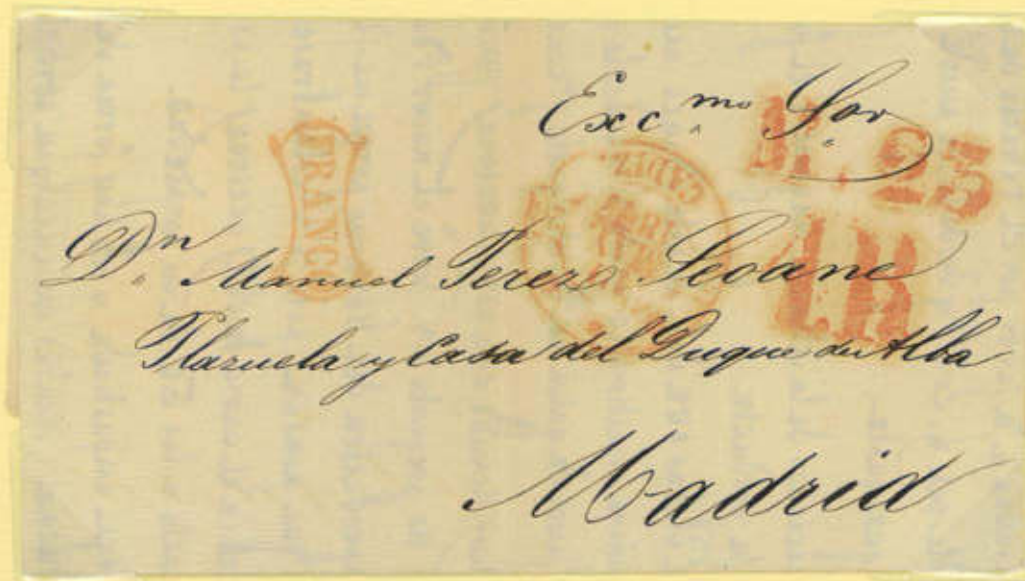 Exc.mo Sor
N. 23
1R
FRANCO
CADIZ.
ABRIL
D.n Manuel Perez Seoane
Plazuela y Casa del Duque de Alba
Madrid